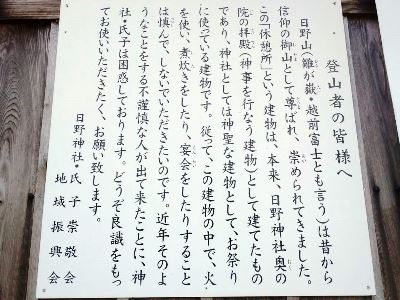 登山者の皆様へ
日野山(雛が嶽・越前富士とも言う)は昔から
信仰の御山として尊ばれ、崇められてきました。
この「休憩所」という建物は、本来、日野神社奥の
院の拝殿(神事を行なう建物)として建てたもの
であり、神社としては神聖な建物として、お祭り
に使っている建物です。従って、この建物の中で、火
を使い、煮炊きをしたり、宴会をしたりすること
は慎んで、しないでいただきたいのです。近年そのよ
うなことをする不謹慎な人が出て来たことに、神
社・氏子は困惑しております。どうぞ良識をもっ
てお使いいただきたく、お願い致します。
日野神社・氏子崇敬会
地域振興会